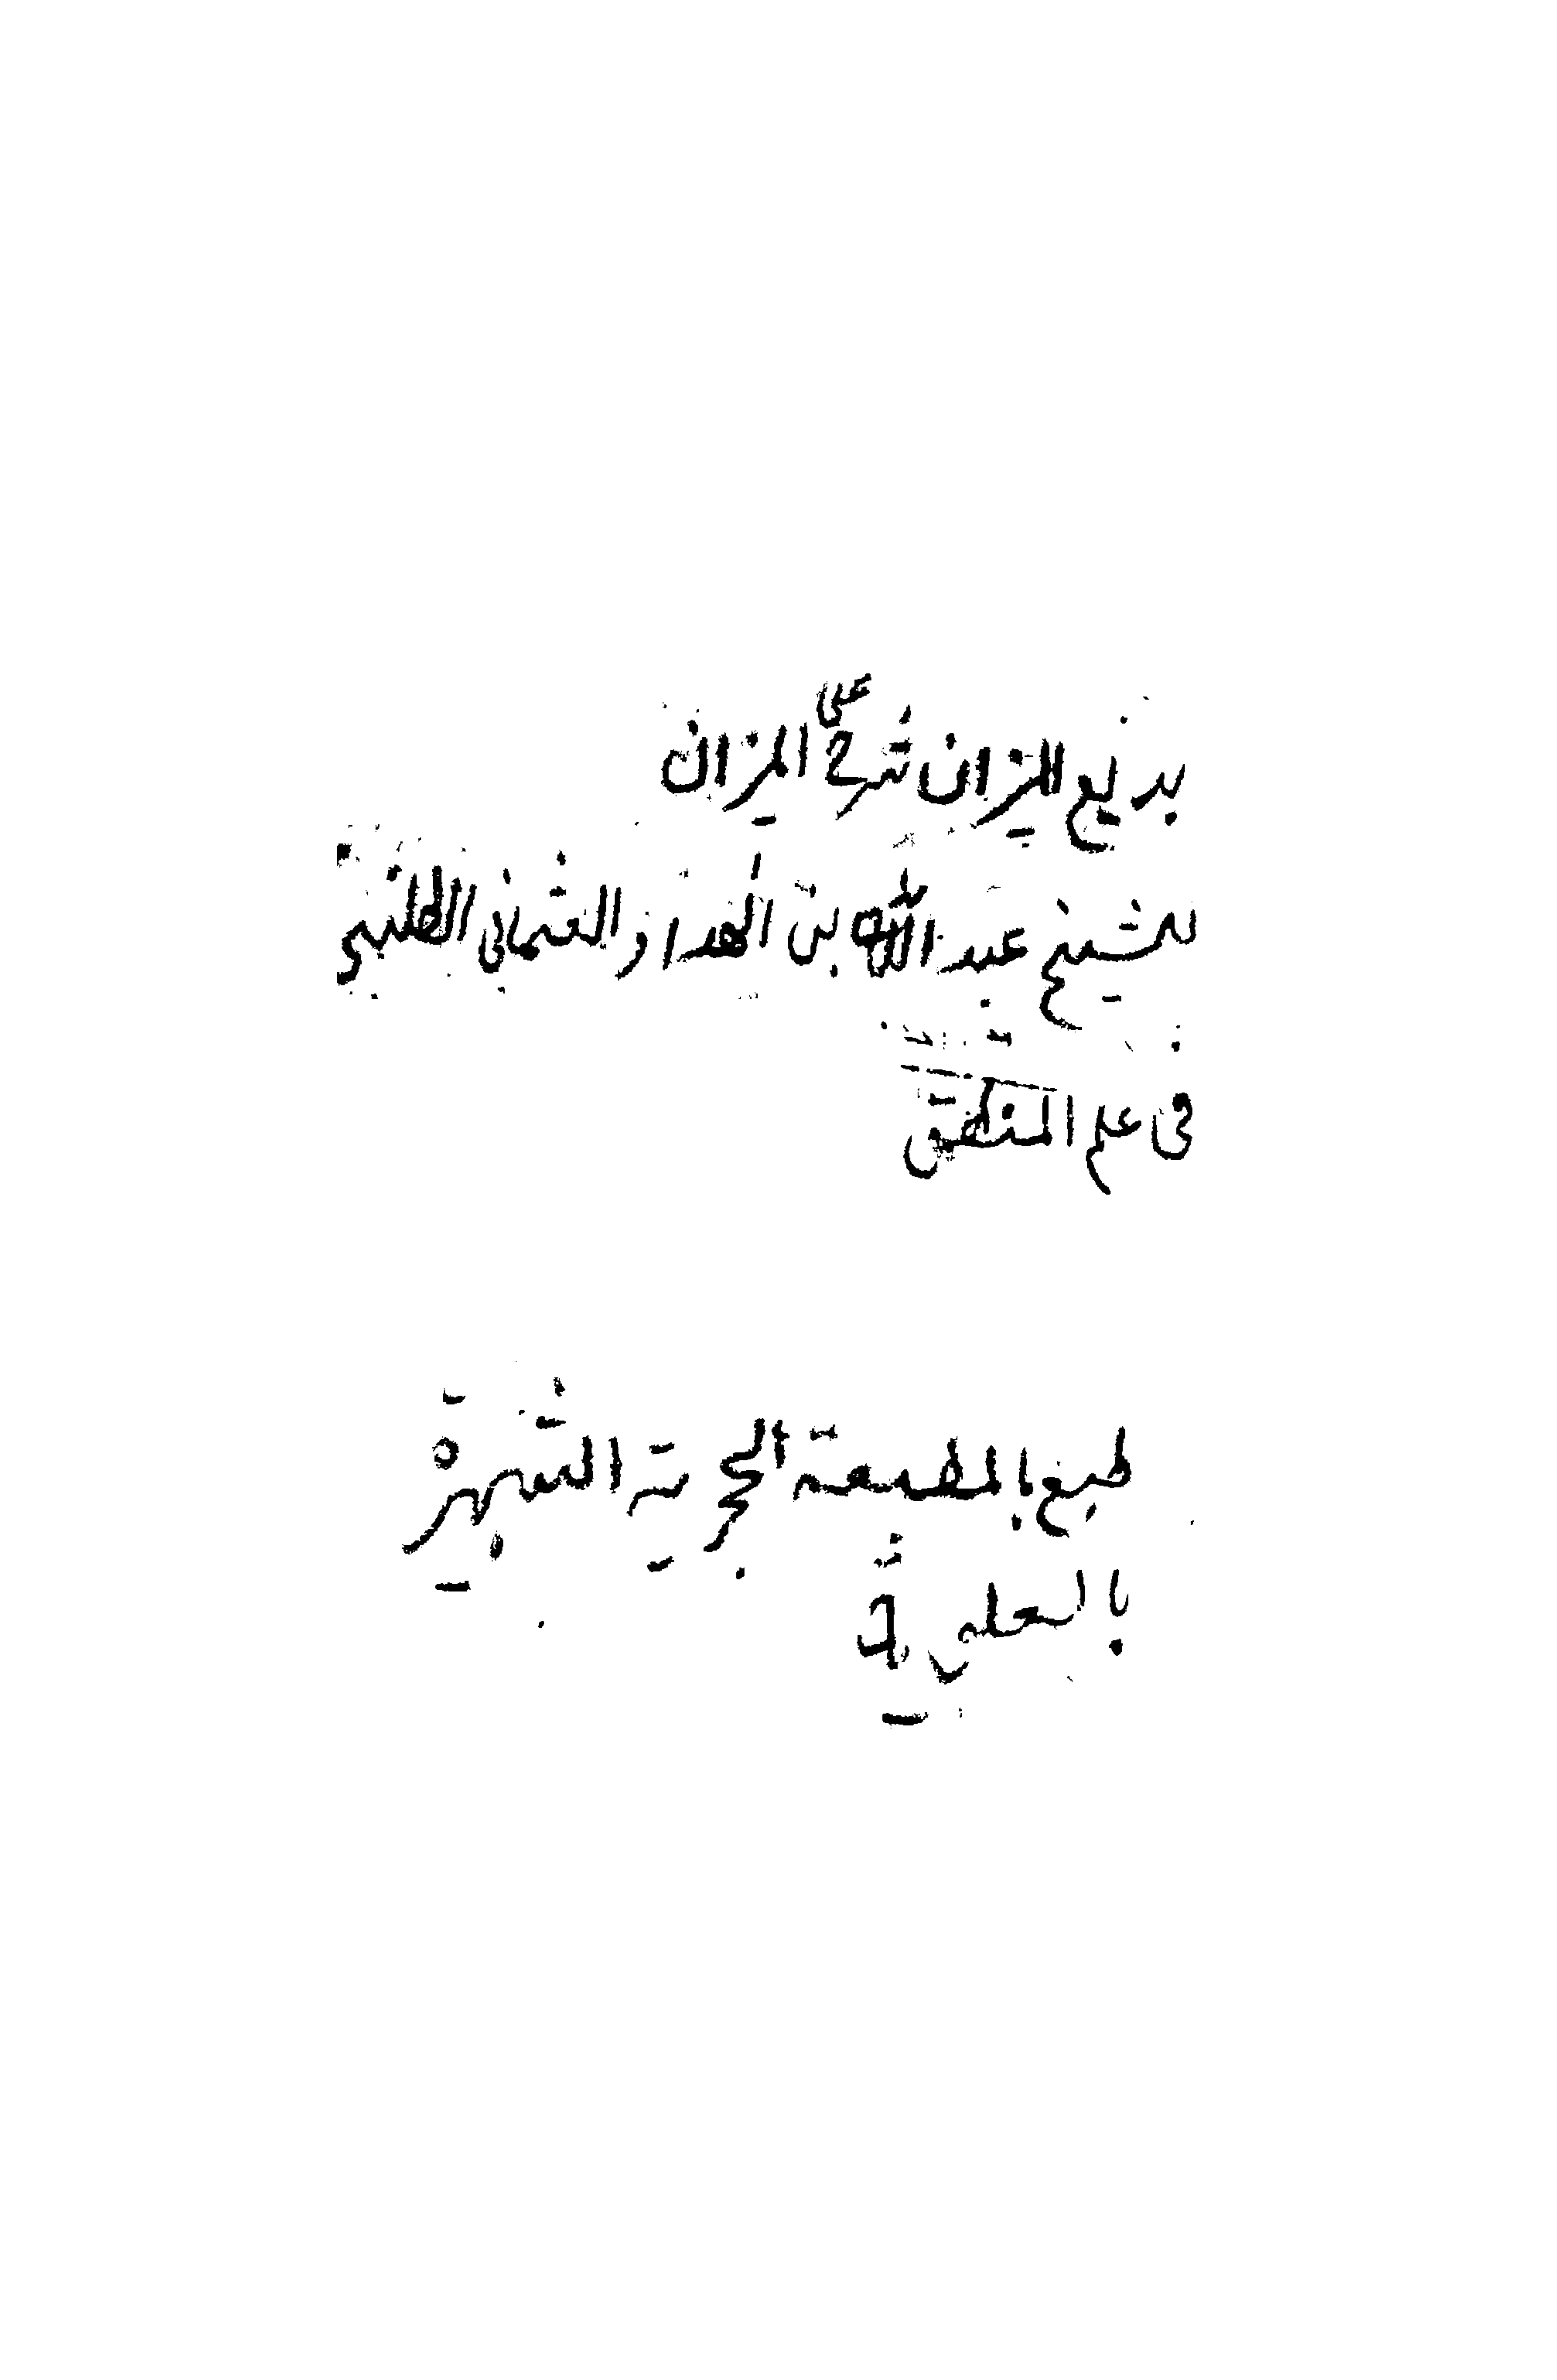 بديع الميزان شرح على الميزان
للشيخ عبد الله بن الهداد العثماني الطلنبي
في علم المنطق
طبع بالمطبعة الحجرية الشهيرة
بالعلوية